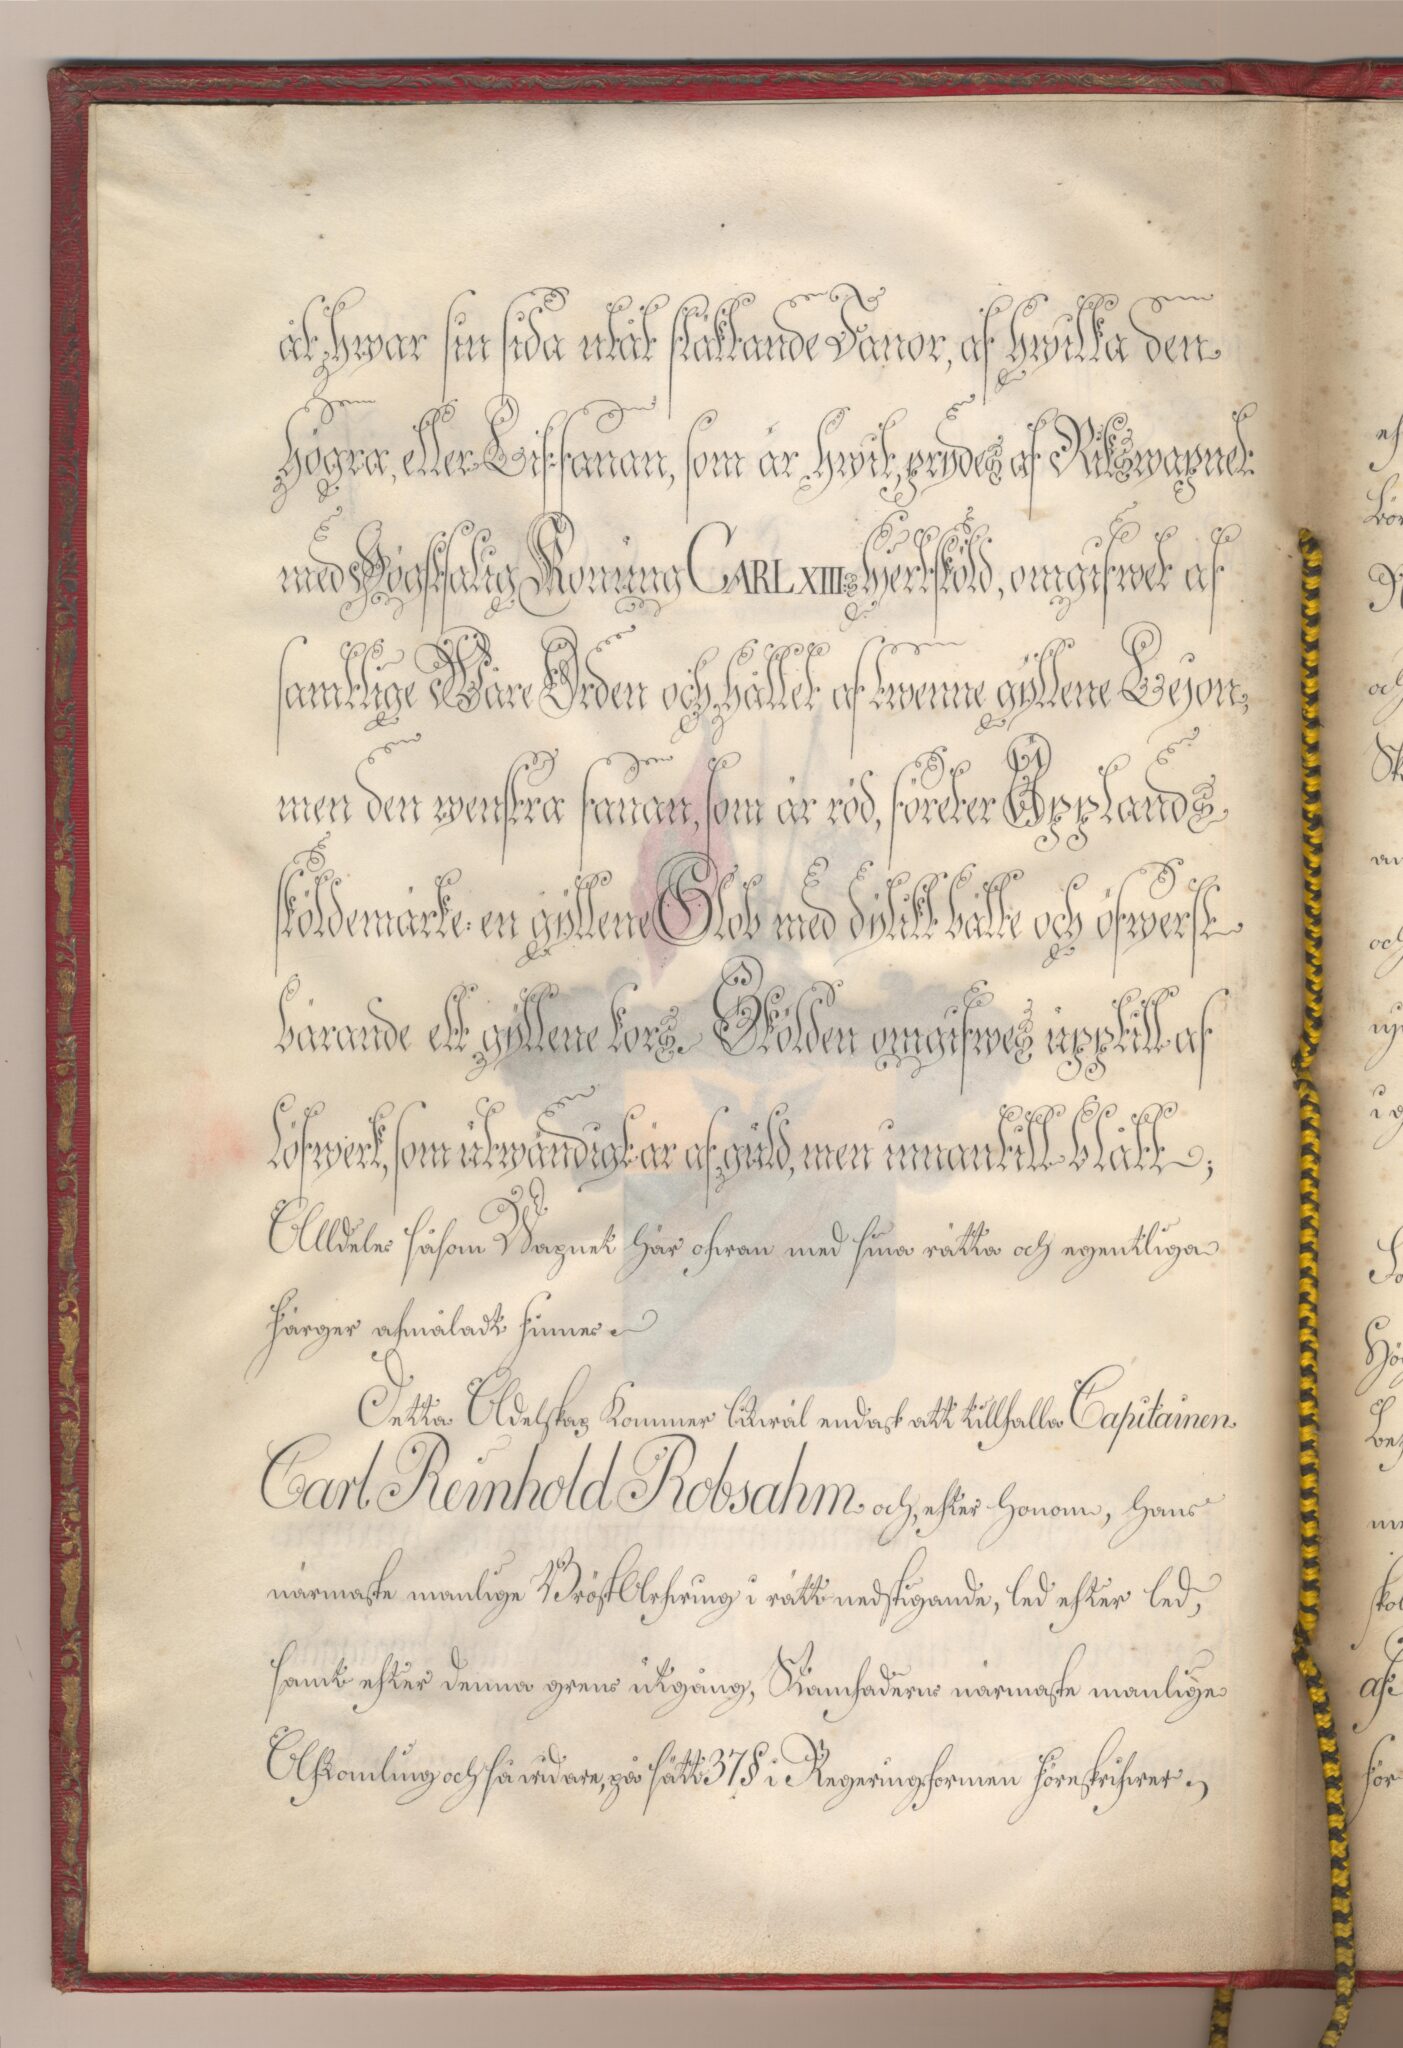 åt hwar sin sida utåt fläktande Fanor, af hwilka den
högra, eller Lif-fanan, som är hwit, prydes af Rikswapnet
med Högstsalig Konung CARL XIII:s Hjertsköld, omgifwet af
samtlige Wåre Orden och hållet af twenne gyllene Lejon;
men den wenstra fanan, som är röd, företer Upplands
sköldemärke: en gyllene Glob med dylikt bälte och öfwerst
bärande ett gyllene kors. Skölden omgifwes upptill af
löfwerk, som utwändigt är af guld, men innantill blått;
Alldeles såsom Wapnet här ofwan med sina rätta och egentliga
färger afmåladt finnes.
Detta Adelskap kommer likwäl endast att tillfalla Capitainen
Carl Reinhold Robsahm och, efter honom, hans
närmaste manlige BröstArfwing i rätt nedstigande, led efter led,
samt efter denna grens utgång, Stamfaderns närmaste manlige
Afkomling och så widare, på sätt 37 § i Regeringsformen föreskrifwer.
och
och